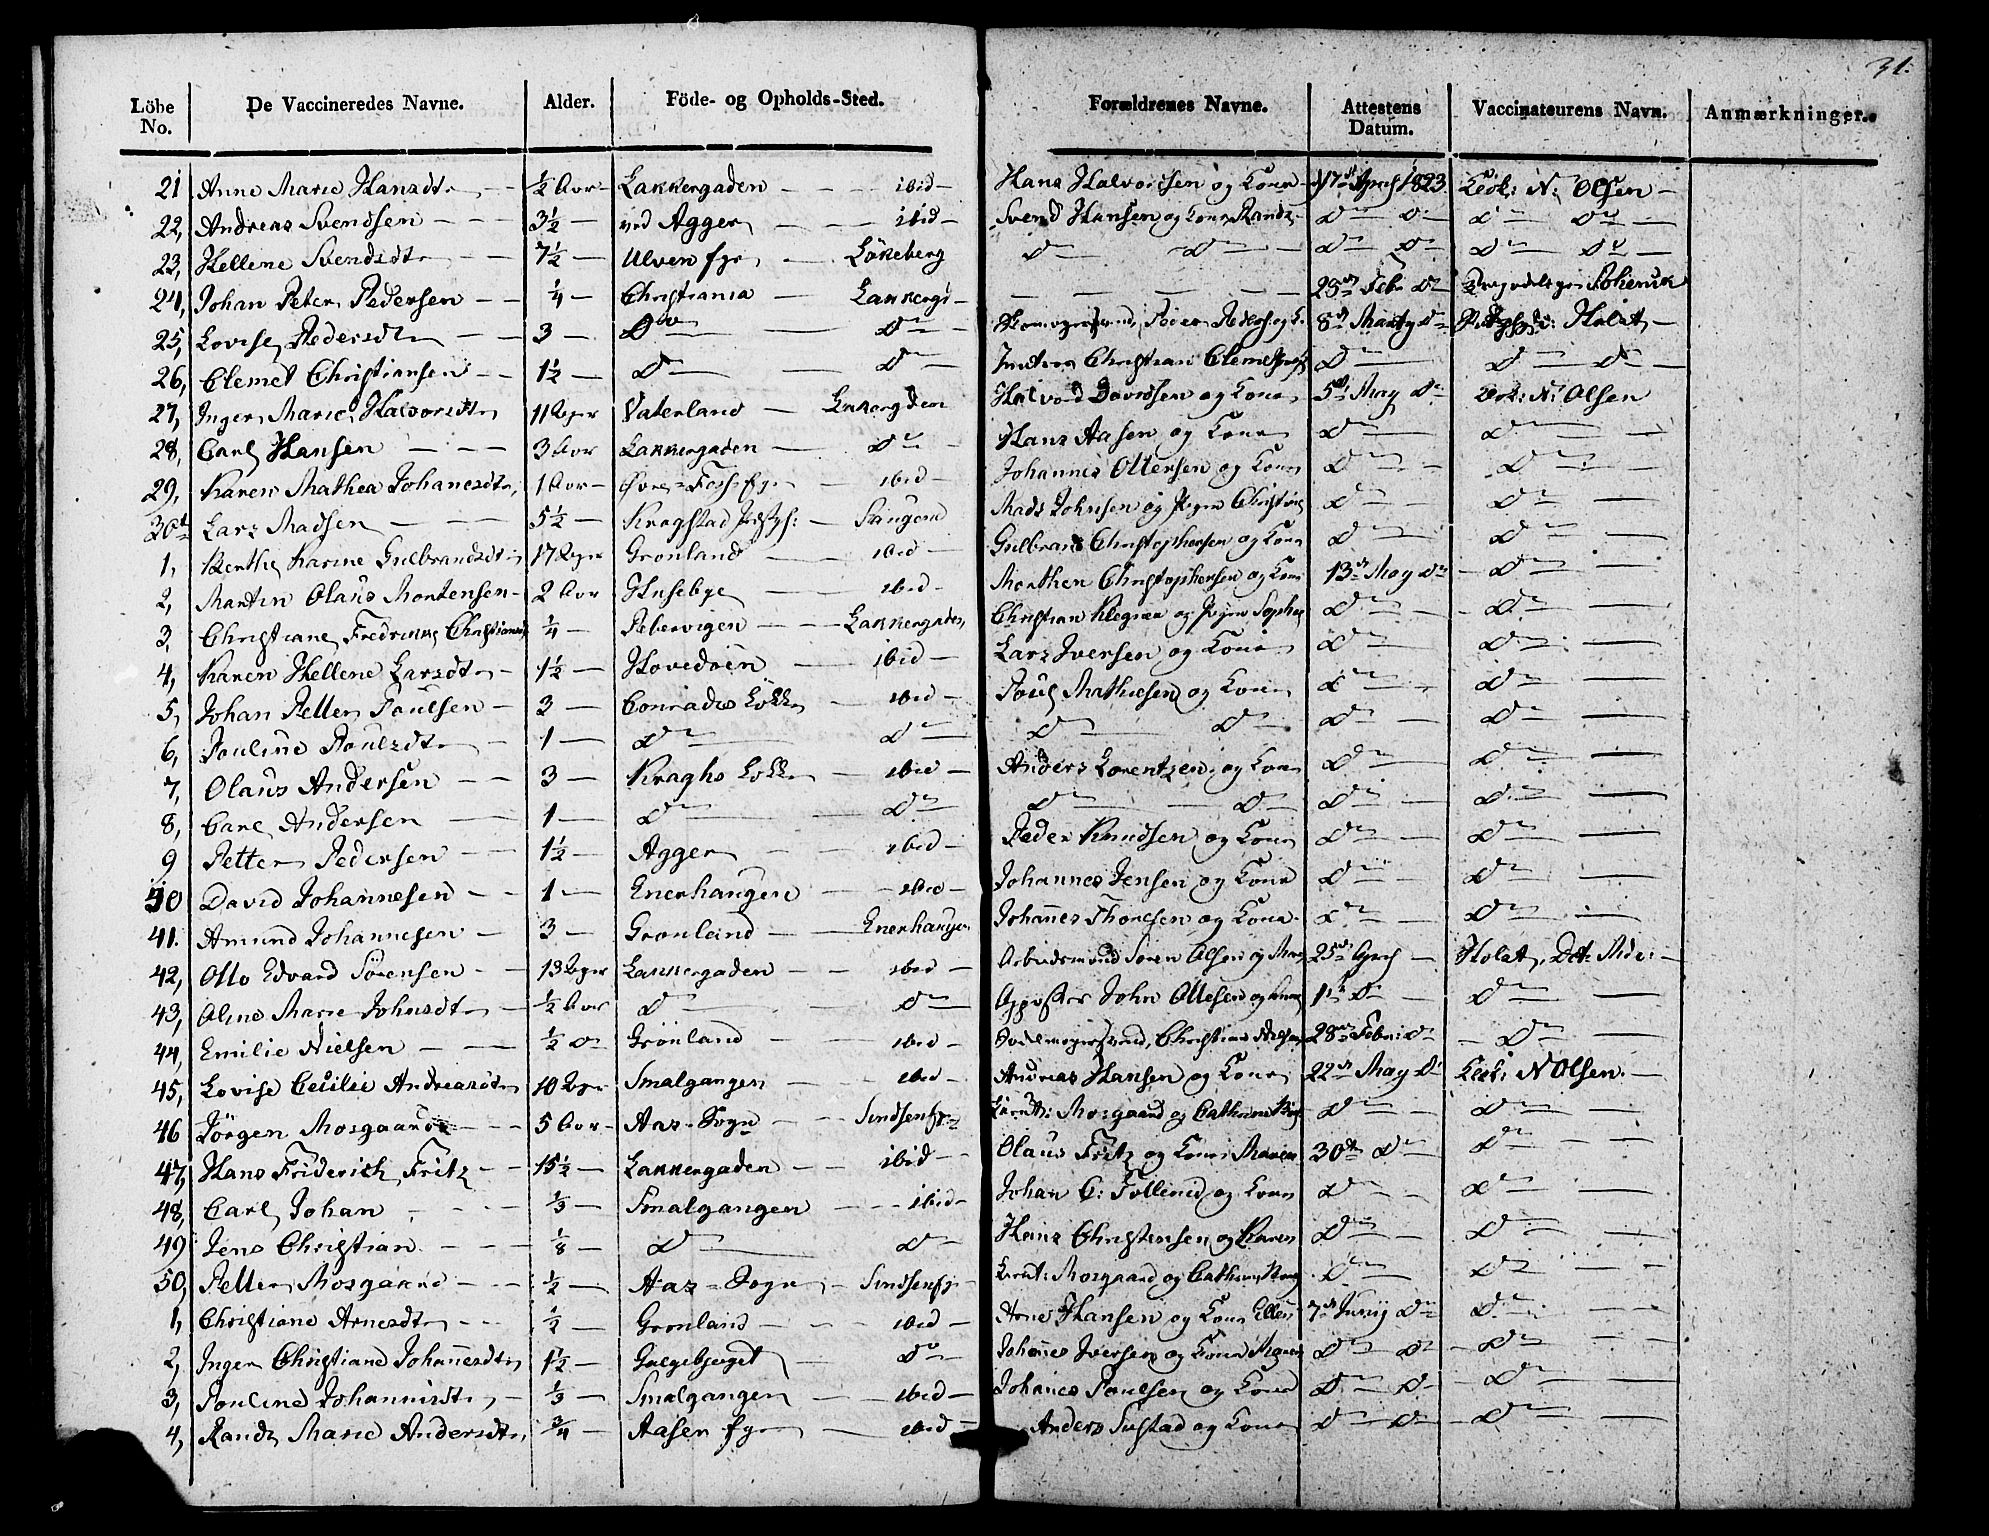 31.
Löbe No. De Vaccineredes Navne. Alder. Föde- og Opholds-Sted. Forældrenes Navne. Attestens Datum. Vaccinateurens Navn. Anmærkninger.
21 Anne Marie Hansdtr ½ Aar Lakkergaden ibid Hans Halvorsen og Kone 17de April 1823 N: Olsen
22, Andreas Svendsen 3½ ved Agger ibid Svend Hansen og Kone Randi Do Do Do Do
23, Hellene Svendsdtr 7½ Ulven Lökeberg Do Do Do Do Do Do
24, Johan Peter Pedersen ¼ Christiania Lakkerg 25de Febr Do
25, Lovise Pedersdtr 3 Do Do Peder 8de Marty Do Holst
26, Clemet Christiansen 1½ Do Do Christian Do Do Do
27, Inger Marie Halvorsdtr 11 Uger Vaterland Lakkergden Halvord Davidsen og Kone 5te May Do N: Olsen
28, Carl Hansen 3 Aar Lakkergaden Do Hans Aasen og Kone Do Do
29, Karen Mathea Johanesdtr 1 Aar Øvre Foss ibid Johannes Ottersen og Kone Do Do
30 Lars Madsen 5½ Kragstad Mads Johnsen og Pigen Christine Do Do
1, Berthe Karine Gulbrandsdtr 17 Uger Grönland ibid Gulbrand Christophersen og Kone Do Do
2, Martin Olaus Mortensen 2 Aar Husebye ibid Morthen Christophersen og Kone 13de May Do Do
3, Christiane Fredrikke Christiansdtr ¼ Pebervigen Lakkergaden Christian og Pigen Sophie Do Do
4, Karen Hellene Larsdtr 1½ Hovedöen ibid Lars Iversen og Kone Do Do
5, Johan Petter Poulsen 3 Conrads Lökke ibid Poul Mathiesen og Kone Do Do
6, Pouline Poulsdtr 1 Do Do Do Do Do Do
7, Olaus Andersen 3 Kraghs Lökke ibid Anders Lorentzen og Kone Do Do
8, Carl Andersen 1 Do Do Do Do Do Do
9 Petter Pedersen 1½ Agger ibid Peder Knudsen og Kone Do Do
40 David Johannesen 1 Enerhaugen ibid Johannes Jensen og Kone Do Do
41. Amund Johannesen 3 Grönland Enerhaugen Johanes Thoresen og Kone Do Do
42, Otto Edvard Sörensen 13 Uger Lakkergaden ibid Arbeidsmand Sören Olsen og 25de April Holst,
43, Oline Marie Johnsdtr ½ Aar Do Do John Ottesen og 1ste Do Do
44, Emilie Nielsen ½ Do Grönland ibid Christian Nielsen 28de Febr: Do Do
45, Lovise Cecilie Andreasdtr 10 Uger Smalgangen ibid Andreas Hansen og Kone 22de May Do N Olsen
46 Jörgen Mosgaard 5 Aar Aas-Sogn Sindsen Mosgaard og Cathrine Do Do
47, Hans Friderich Fritz 15½ Lakkergaden ibid Olaus Fritz og Kone Maren 30te Do Do
48, Carl Johan ⅓ Smalgangen ibid Johan C: Follend og Kone Do Do
49 Jens Christian ⅛ Do Do Hans Christensen og Karen Do Do
50, Petter Mosgaard ½ Aas-Sogn Sindsen Mosgaard og Cathrine Do Do
1, Christiane Arnesdtr ½ Grönland ibid Arne Hansen og Kone Ellen 7de Juny Do Do
2, Inger Christiane Johanesdtr 1½ Galgebjerget Do Johanes Iversen og Kone Maren Do Do Do
3, Pouline Johannisdtr ⅓ Smalgangen ibid Johanes Poulsen og Kone Do Do Do
4, Randi Marie Andersdtr ¾ Aasen ibid Anders Sustad og Kone Do Do Do